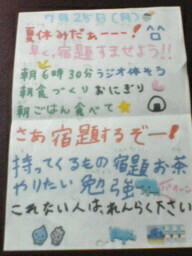 7月25日(月)
夏休みだぁーーー!
早く宿題すませよう!!
朝6時30分ラジオ体そう
朝食づくりおにぎり
朝ごはん食べて
さあ宿題するぞー!
持ってくるもの宿題お茶
やりたい勉強
これない人は、れんらく下さい